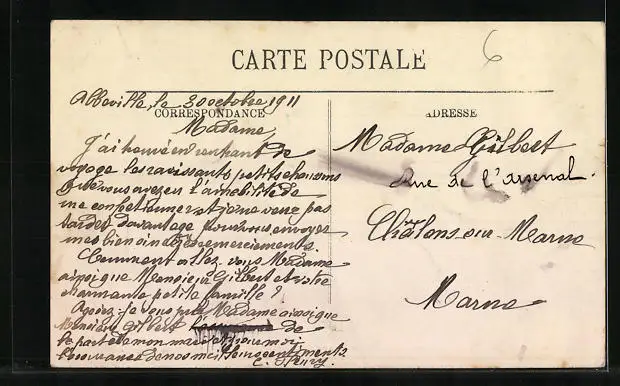 6
CARTE POSTALE
Abbeville, le 30 octobre 1911
CORRESPONDANCE
ADRESSE
Madame,
J'ai trouvé en rentrant de
voyage les ravissants petits chaussons
que vous avez eu l'amabilité de
me confectionner et je ne veux pas
tarder davantage pour vous envoyer
mes bien sincères remerciements.
Comment allez-vous Madame
ainsi que Monsieur Gilbert et votre
charmante petite famille ?
Agréez, je vous prie Madame ainsi que
Monsieur Gilbert de
la part de mon mari et
l'assurance de nos meilleurs sentiments.
Madame Gilbert
Rue de l'arsenal.
Châlons-sur-Marne
Marne